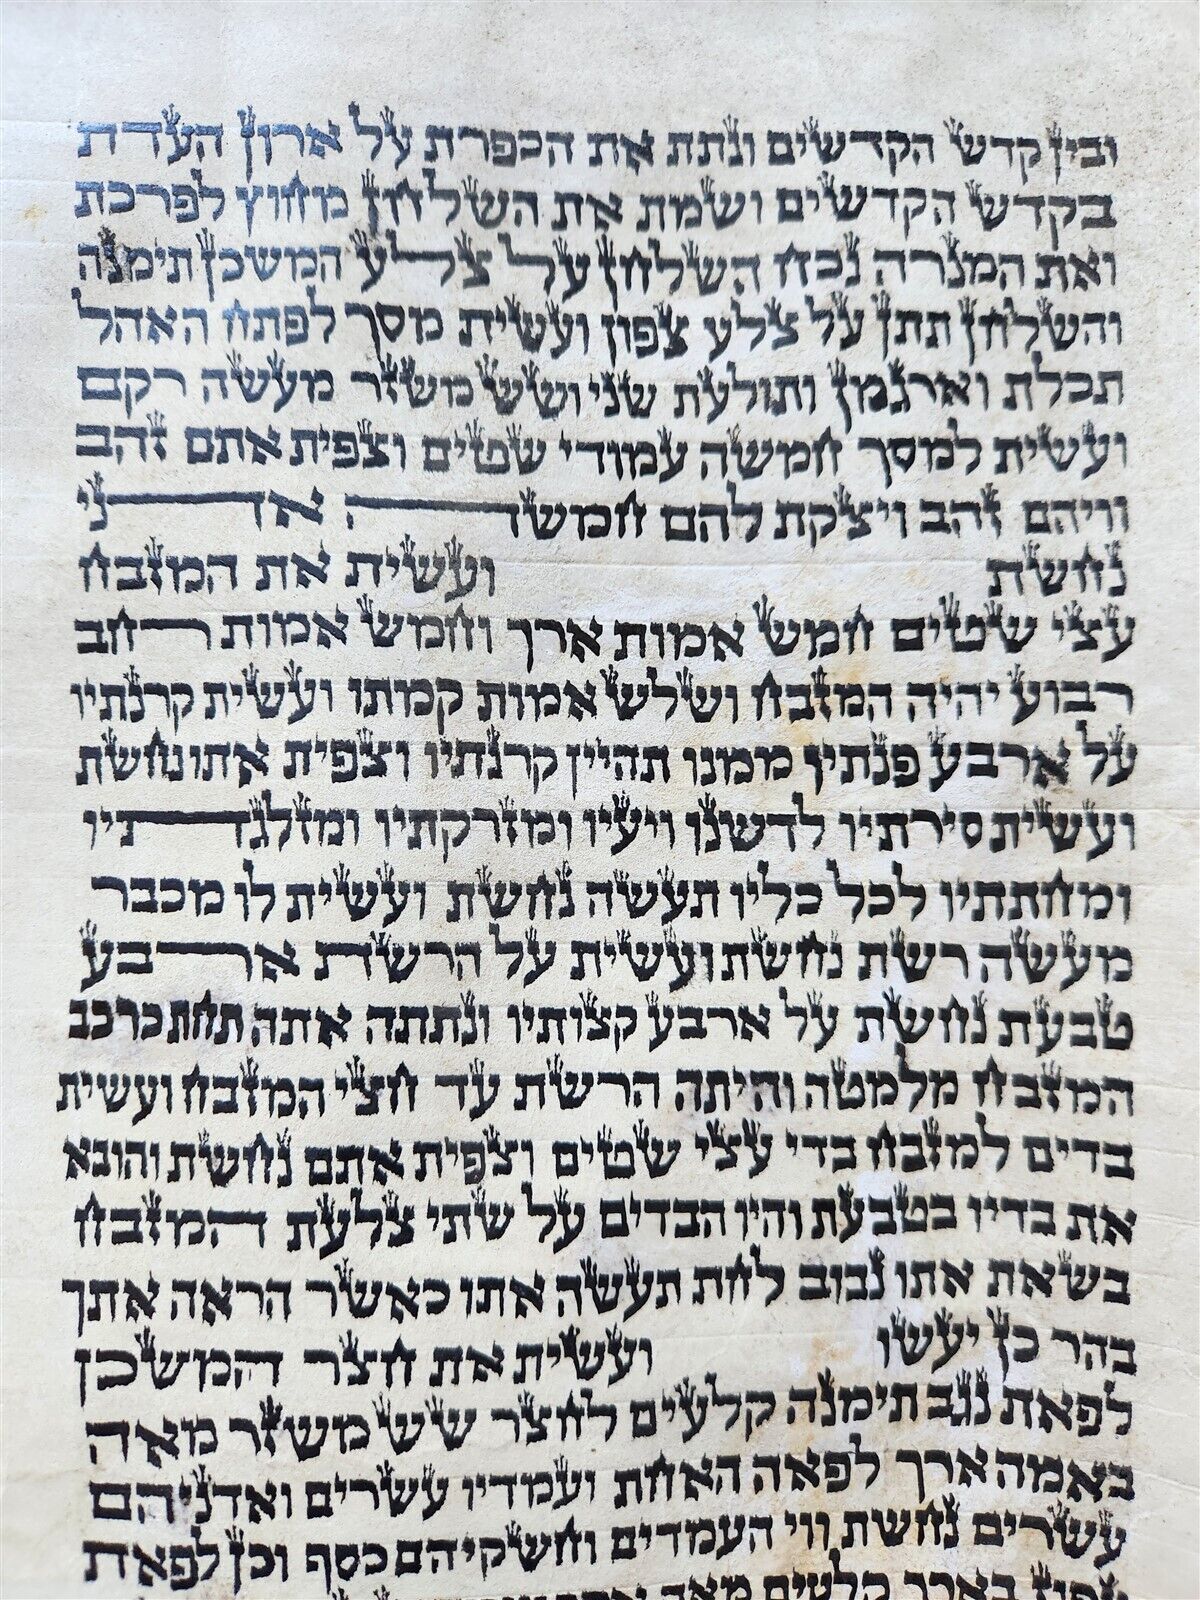 ובין קדש הקדשים ונתת את הכפרת על ארון העדת
בקדש הקדשים ושמת את השלחן מחוץ לפרכת
ואת המנרה נכח השלחן על צלע המשכן תימנה
והשלחן תתן על צלע צפון ועשית מסך לפתח האהל
תכלת וארגמן ותולעת שני ושש משזר מעשה רקם
ועשית למסך חמשה עמודי שטים וצפית אתם זהב
וויהם זהב ויצקת להם חמשה אדני
נחשת ועשית את המזבח
עצי שטים חמש אמות ארך וחמש אמות רחב
רבוע יהיה המזבח ושלש אמות קמתו ועשית קרנתיו
על ארבע פנתיו ממנו תהיין קרנתיו וצפית אתו נחשת
ועשית סירתיו לדשנו ויעיו ומזרקתיו ומזלגתיו
ומחתתיו לכל כליו תעשה נחשת ועשית לו מכבר
מעשה רשת נחשת ועשית על הרשת ארבע
טבעת נחשת על ארבע קצותיו ונתתה אתה תחת כרכב
המזבח מלמטה והיתה הרשת עד חצי המזבח ועשית
בדים למזבח בדי עצי שטים וצפית אתם נחשת והובא
את בדיו בטבעת והיו הבדים על שתי צלעת המזבח
בשאת אתו נבוב לחת תעשה אתו כאשר הראה אתך
בהר כן יעשו ועשית את חצר המשכן
לפאת נגב תימנה קלעים לחצר שש משזר מאה
באמה ארך לפאה האחת ועמדיו עשרים ואדניהם
עשרים נחשת ווי העמדים וחשקיהם כסף וכן לפאת
צפון בארך קלעים מאה